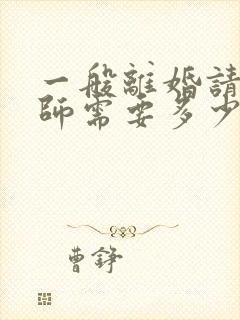 一般離婚請
師需要多少
曹錚